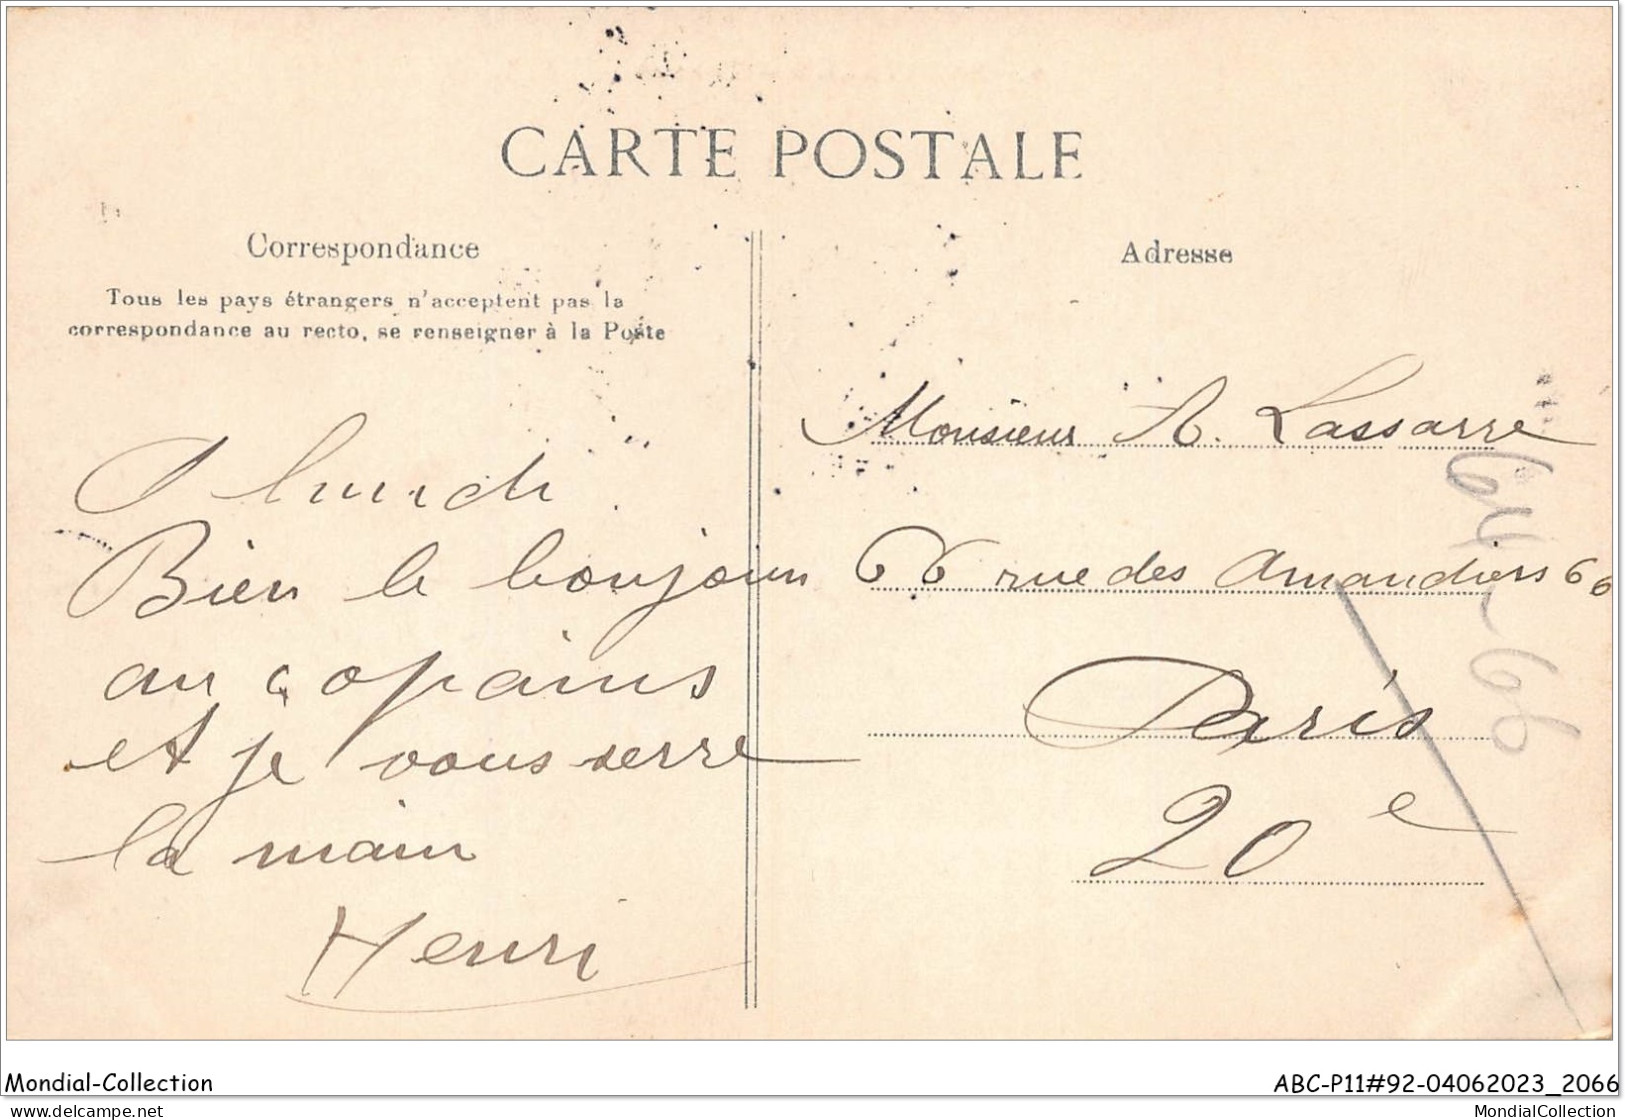 CARTE POSTALE
Correspondance
Tous les pays étrangers n'acceptent pas la
correspondance au recto, se renseigner à la Poste
A lundi
Bien le bonjour
au copains
et je vous serre
la main
Henri
Adresse
Monsieur A. Lassarre
66 rue des Amandiers 66
Paris
20e
64-66
Mondial-Collection
ABC-P11#92-04062023_2066
delcampe.net
MondialCollection